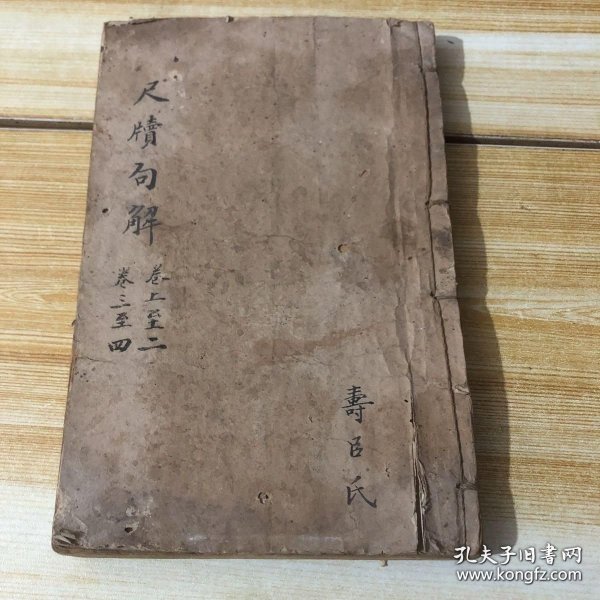 尺牘句解
卷上至二
卷三至四
壽臣氏
孔夫子旧书网
www.kongfz.com